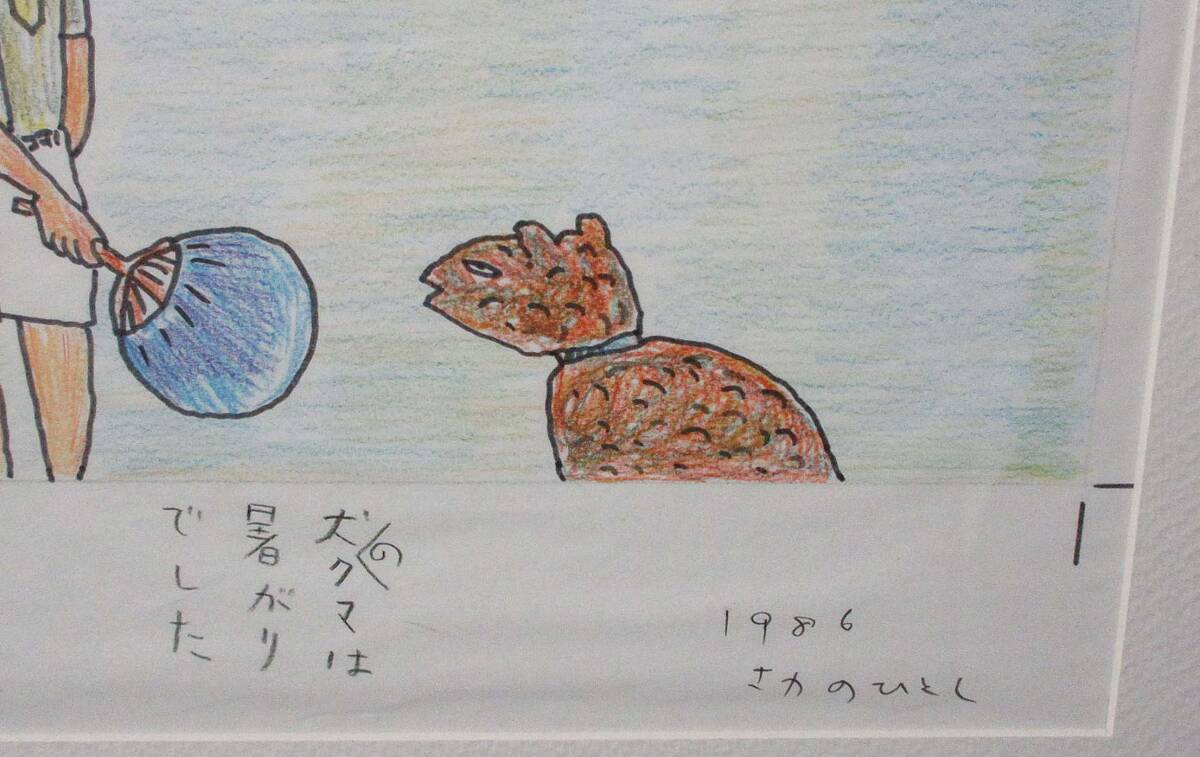 犬のクマは
暑がり
でした
1986
さかのひとし